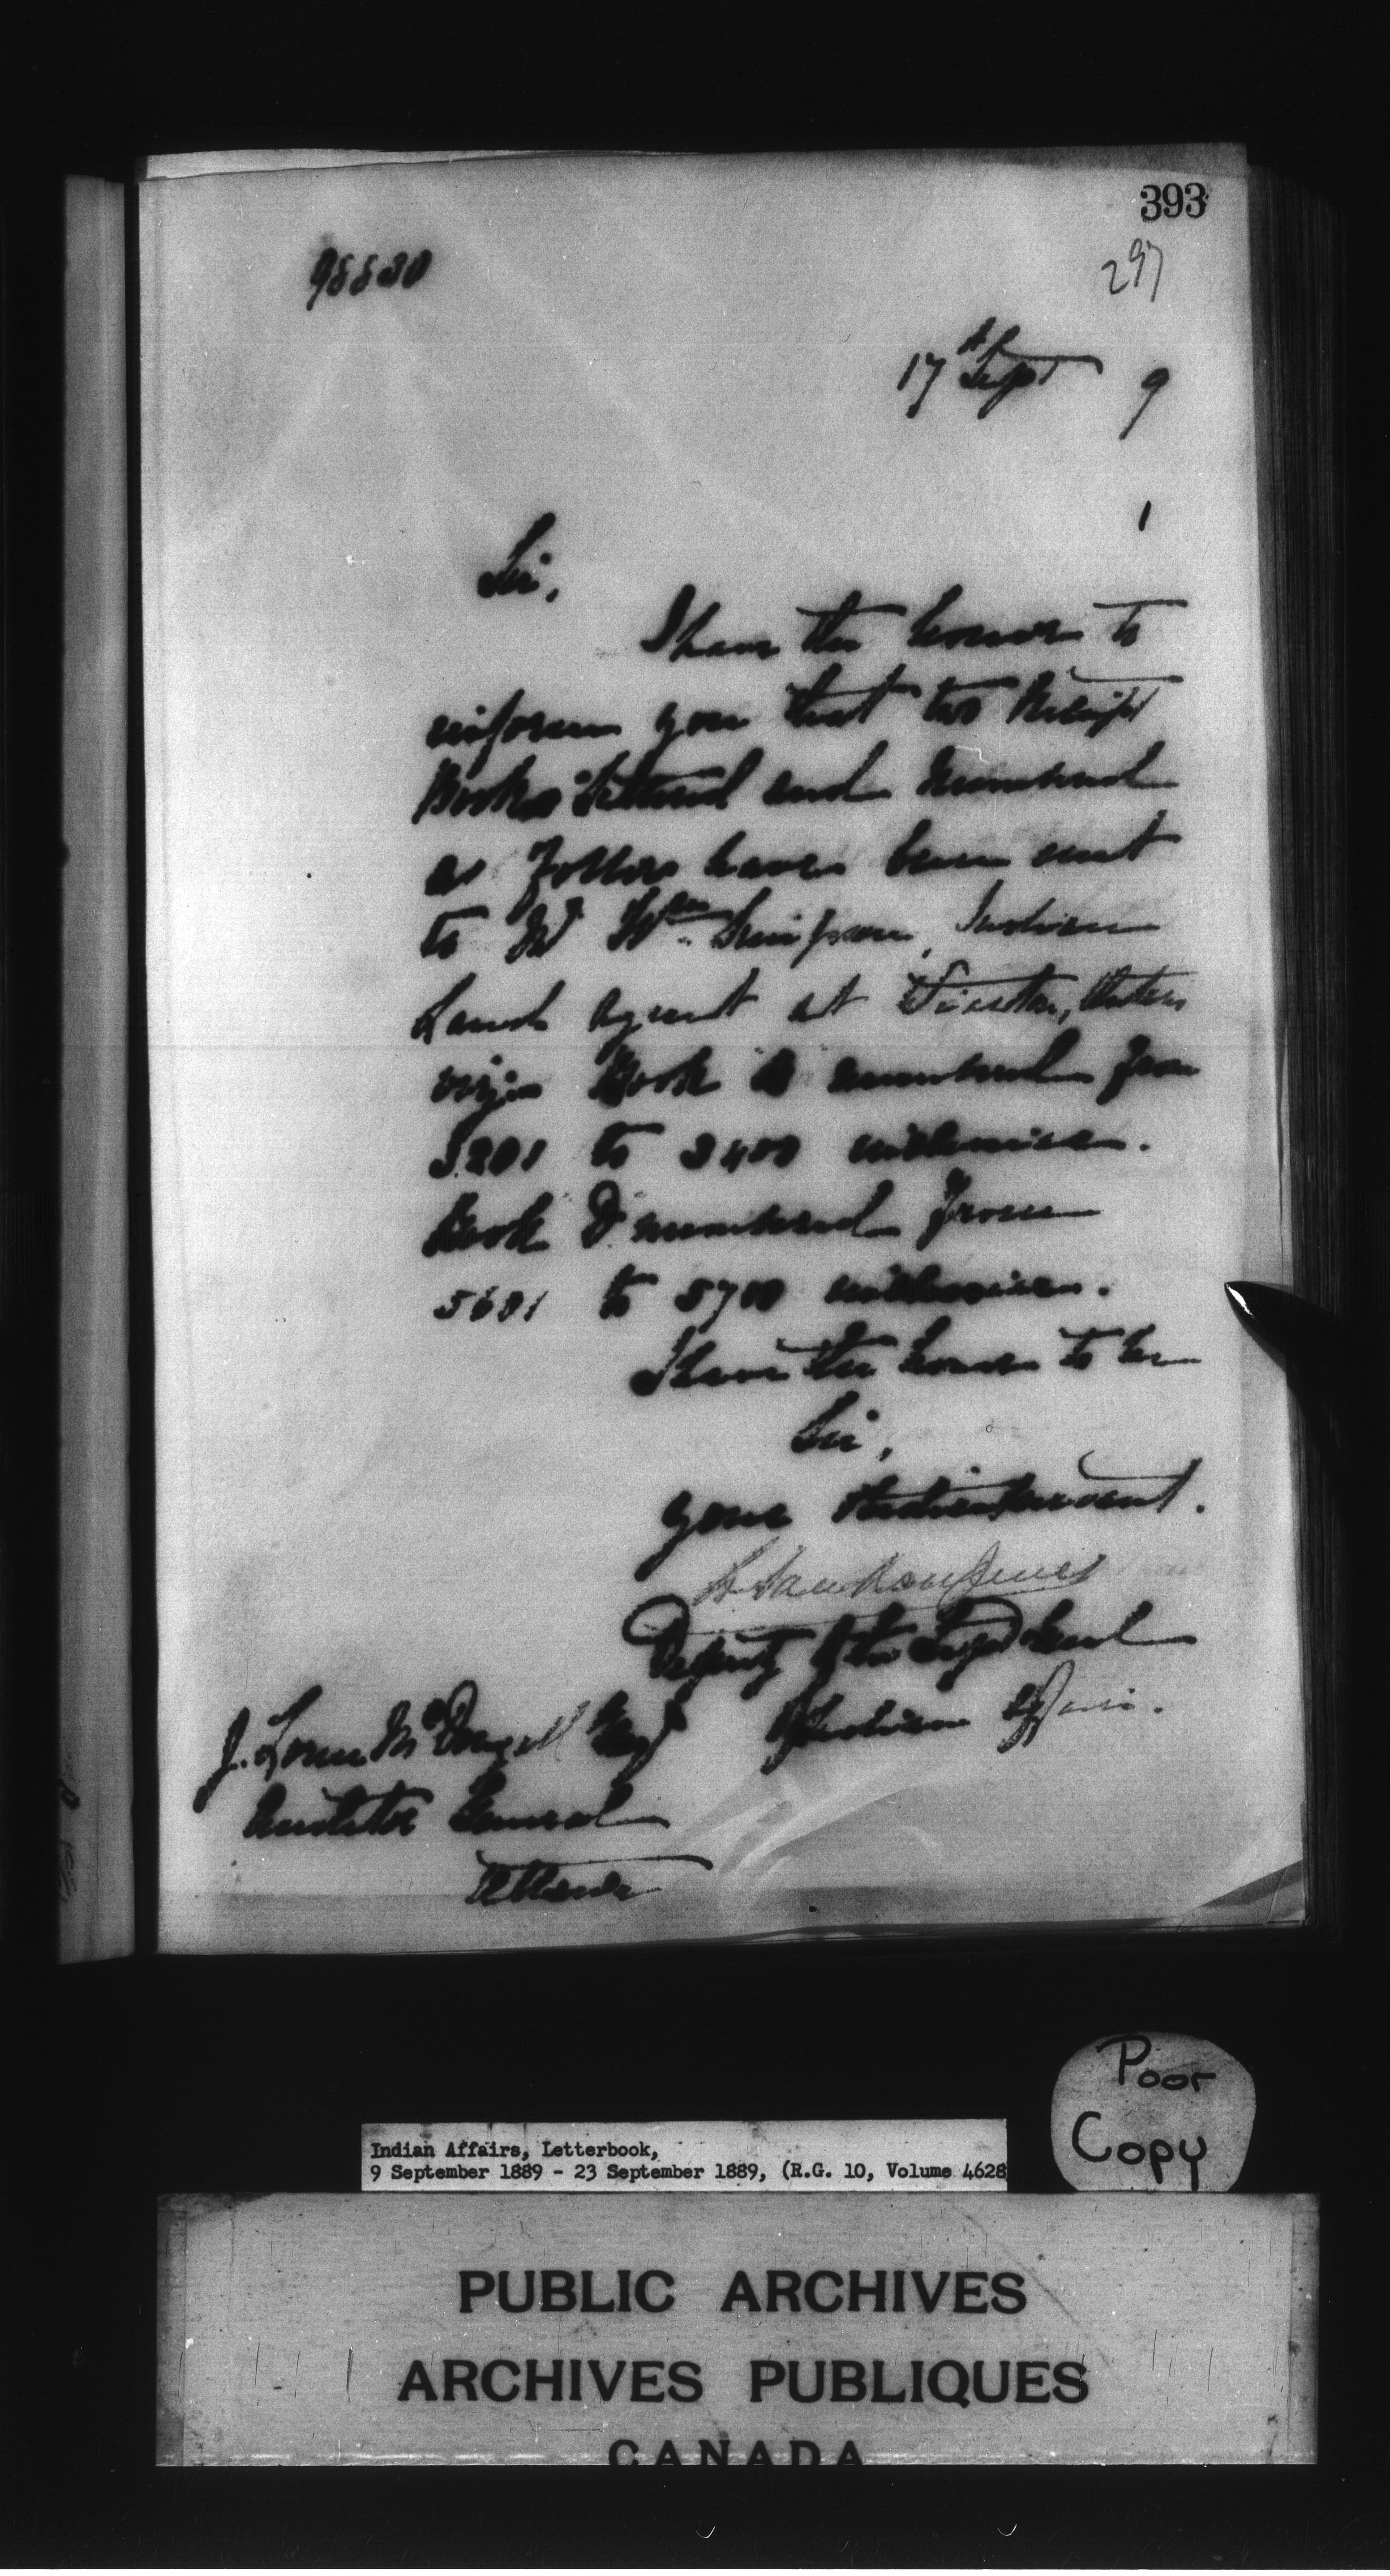 393
98830
297
17th Sept 9
1
Sir,
I have the honor to
inform you that two Receipt
Books lettered and numbered
as follows have been sent
to Mr Wm Simpson, Indian
Land Agent at Wiarton, Ontario
viz: Book B numbered from
to 3400 inclusive.
Book D numbered from
5601 to 5700 inclusive.
I have the honor to be
Sir,
your obedient servant.
L. Vankoughnet
Deputy of the Supt Genl
of Indian Affairs.
J. Lorne McDougall Esq
Auditor General
Ottawa
Poor
Copy
Indian Affairs, Letterbook,
9 September 1889 - 23 September 1889, (R.G. 10, Volume 4628
PUBLIC ARCHIVES
ARCHIVES PUBLIQUES
CANADA